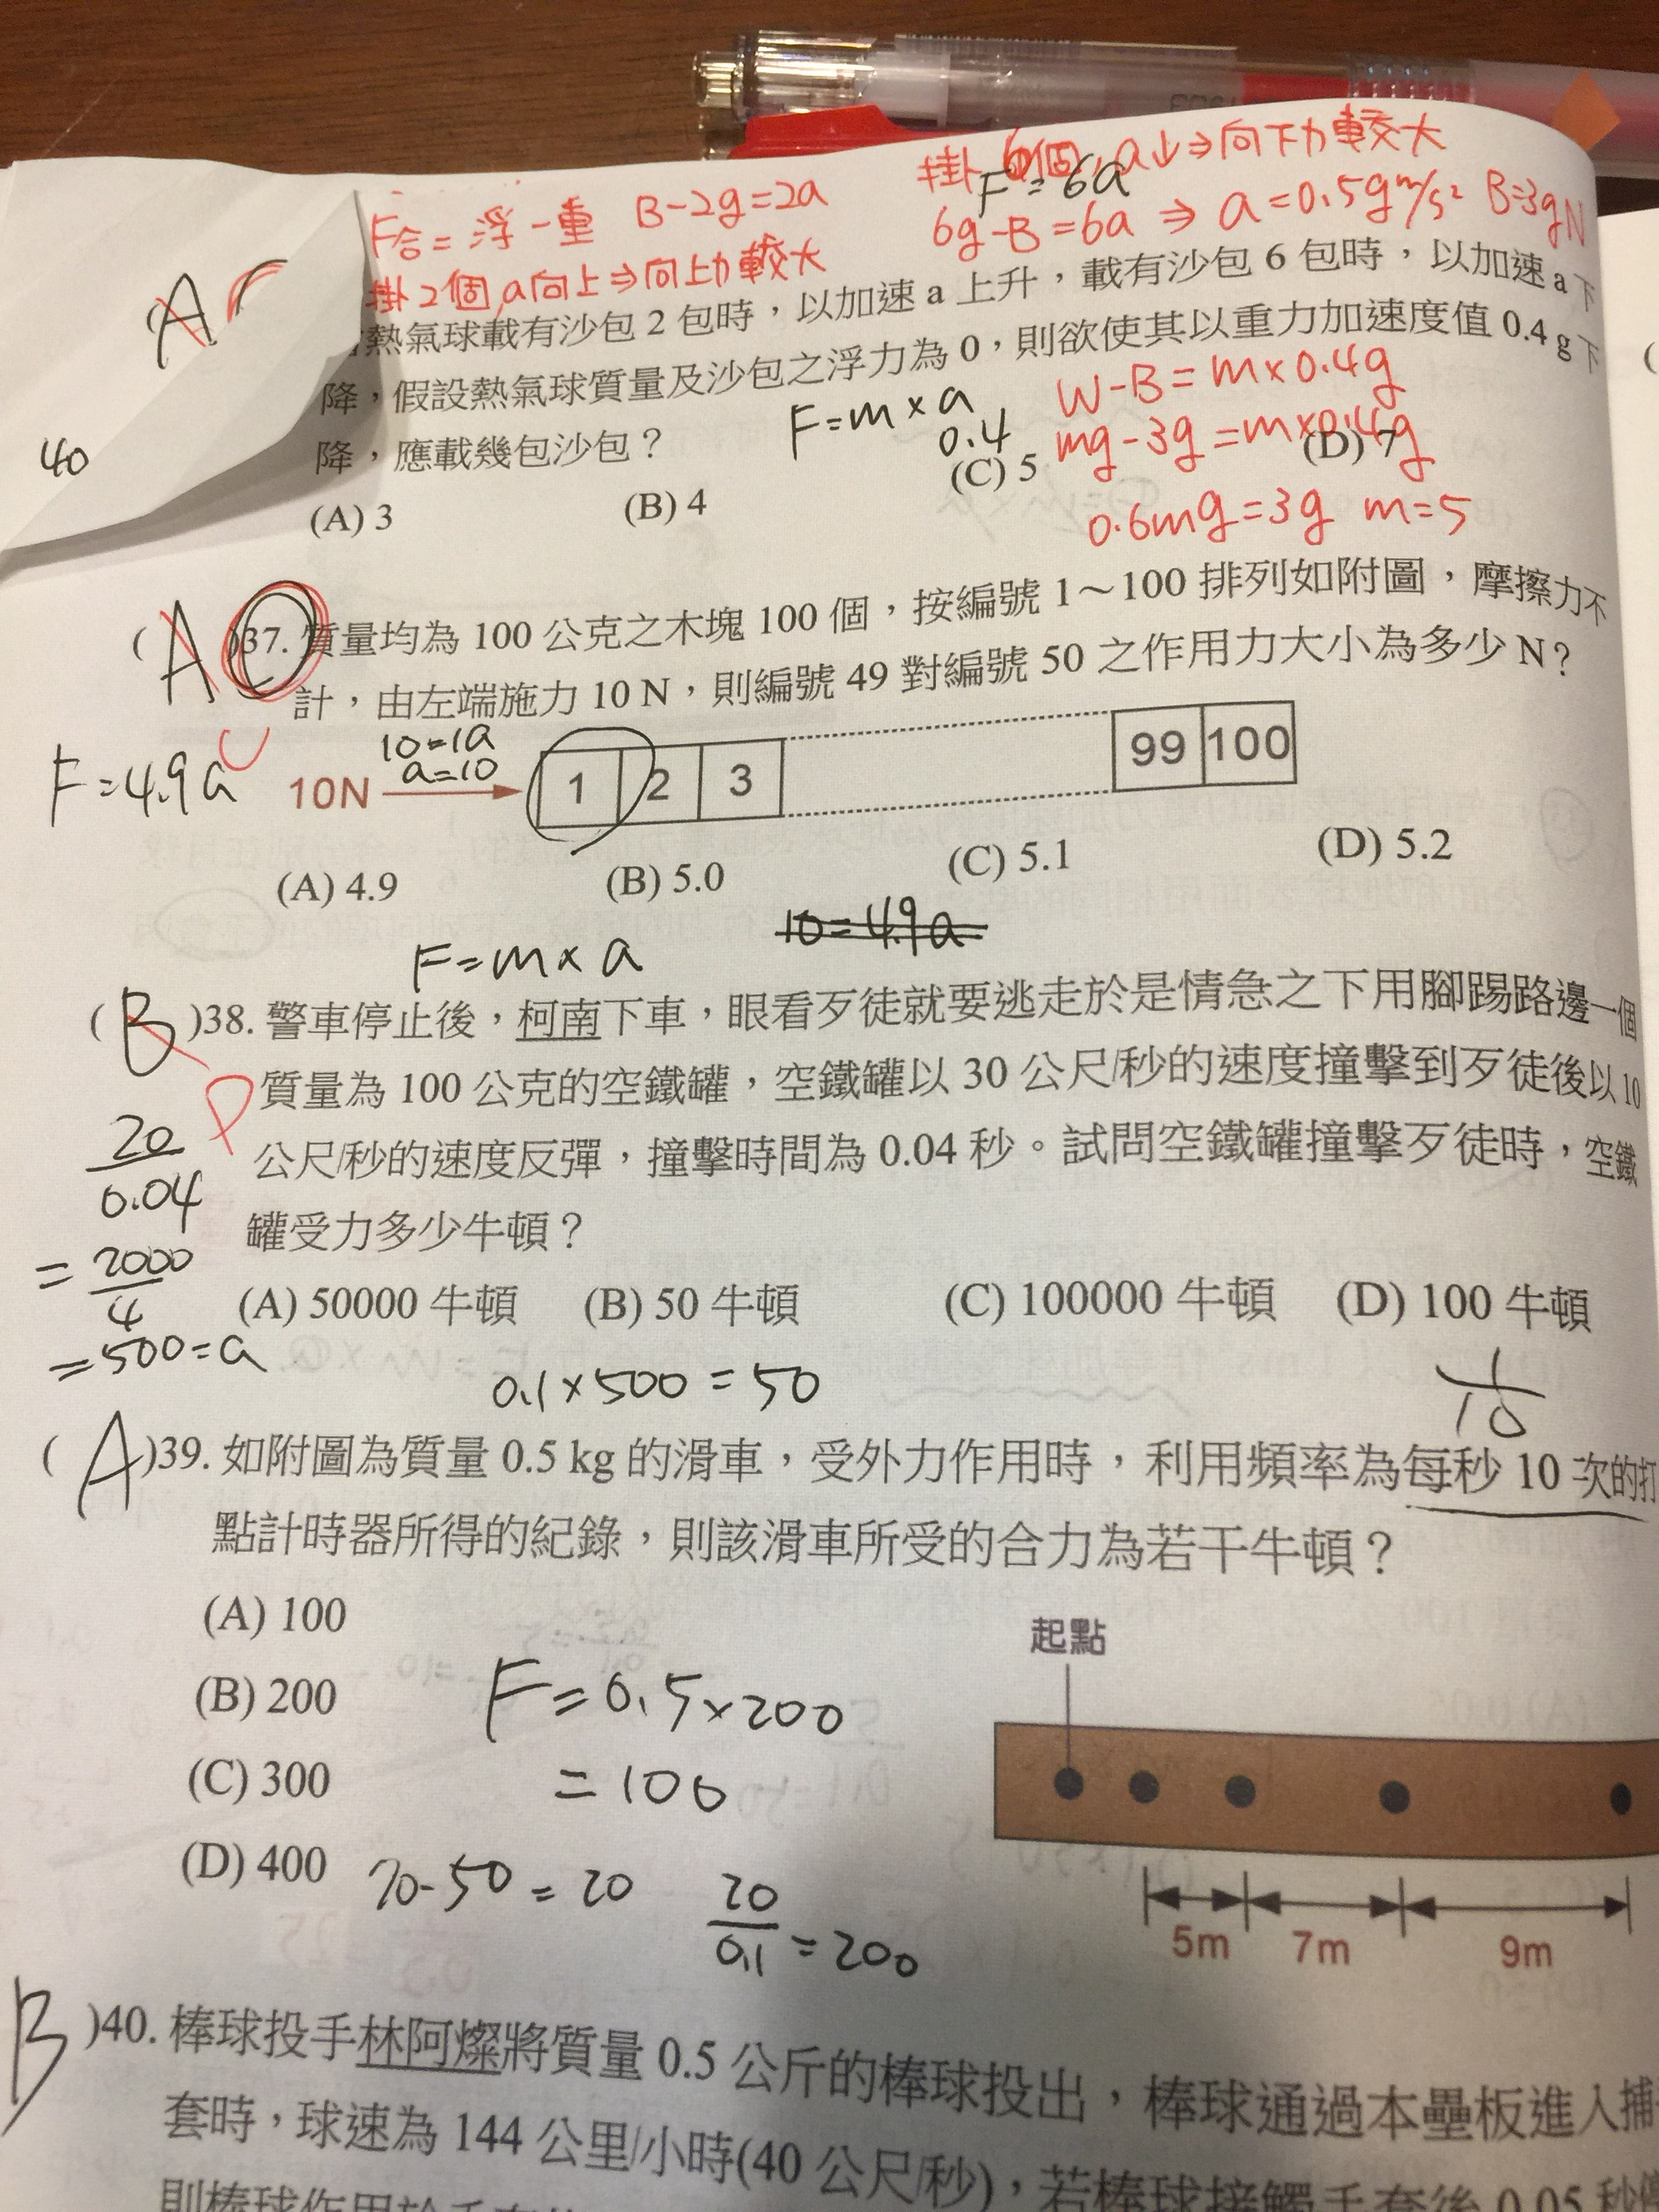 掛6個，a↓⇒向下力較大
F=6a
F合=浮-重 B-2g=2a
6g-B=6a ⇒ a=0.5g m/s² B=3gN
掛2個,a向上⇒向上力較大
A
熱氣球載有沙包2包時，以加速a上升，載有沙包6包時，以加速a下
降，假設熱氣球質量及沙包之浮力為0，則欲使其以重力加速度值0.4g下
降，應載幾包沙包？
40
F=m×a
0.4
W-B=m×0.4g
mg-3g=m×0.4g
0.6mg=3g m=5
(A) 3 (B) 4 (C) 5 (D) 7
(A)37. 質量均為100公克之木塊100個，按編號1～100排列如附圖，摩擦力不
計，由左端施力10 N，則編號49對編號50之作用力大小為多少N？
C
F=4.9a
10=1a
a=10
10N 1 2 3 99 100
(A) 4.9 (B) 5.0 (C) 5.1 (D) 5.2
F=m×a
10=4.9a
(B)38. 警車停止後，柯南下車，眼看歹徒就要逃走於是情急之下用腳踢路邊一個
D
質量為100公克的空鐵罐，空鐵罐以30公尺/秒的速度撞擊到歹徒後以10
公尺/秒的速度反彈，撞擊時間為0.04秒。試問空鐵罐撞擊歹徒時，空鐵
罐受力多少牛頓？
20
0.04
=2000
4
=500=a
(A) 50000牛頓 (B) 50牛頓 (C) 100000牛頓 (D) 100牛頓
0.1×500=50
1
10
(A)39. 如附圖為質量0.5 kg的滑車，受外力作用時，利用頻率為每秒10次的打
點計時器所得的紀錄，則該滑車所受的合力為若干牛頓？
(A) 100
(B) 200
(C) 300
(D) 400
起點
5m 7m 9m
F=0.5×200
=100
70-50=20
20
0.1
=200
B)40. 棒球投手林阿燦將質量0.5公斤的棒球投出，棒球通過本壘板進入捕
套時，球速為144公里/小時(40公尺/秒)，若棒球接觸手套後0.05秒
則棒球作用於手套